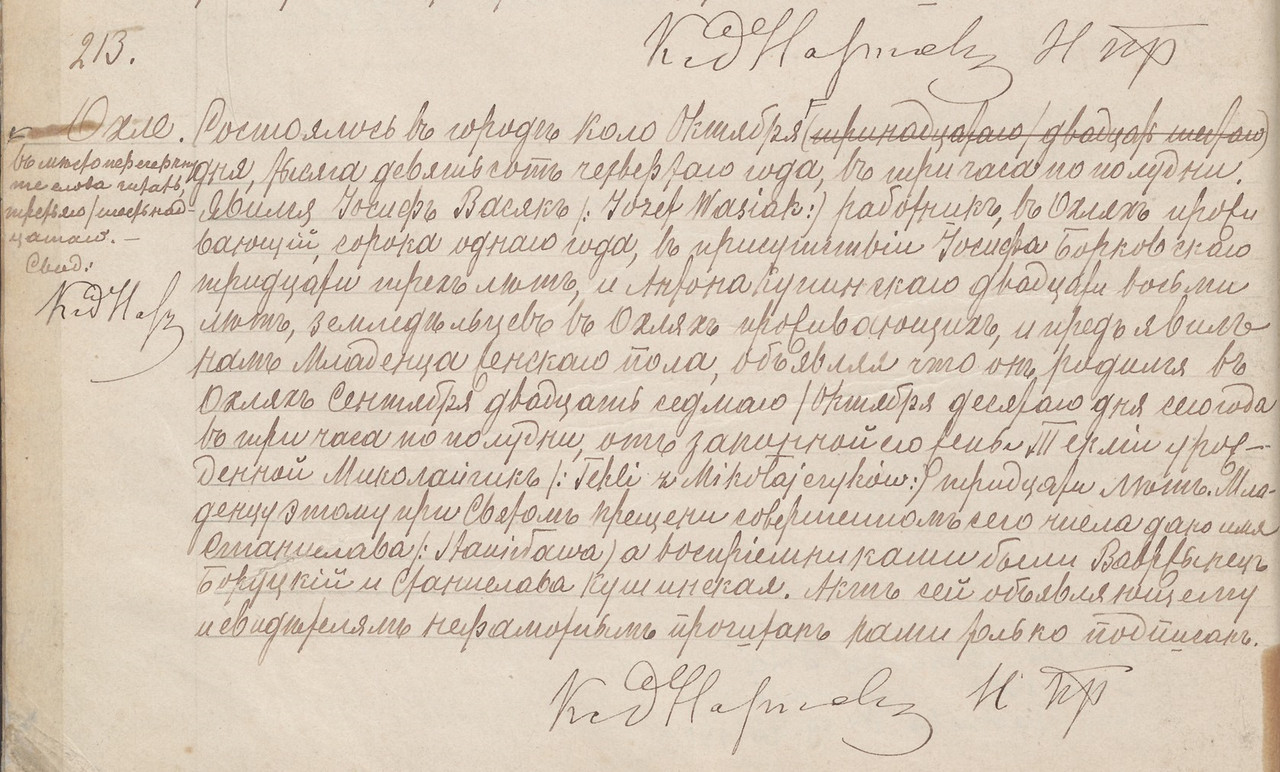 213.
Охле. Состоялось въ городѣ Коло Октября (тринадцатаго / двадцать шестаго)
дня, тысяча девятьсотъ четвертаго года, въ три часа по полудни.
Явился Іосифъ Васякъ /: Józef Wasiak :/ работникъ, въ Охляхъ прожи
вающій, сорока однаго года, въ присутствіи Іосифа Борковскаго
тридцати трехъ лѣтъ, и Антона Кушинскаго двадцати восьми
лѣтъ, земледѣльцевъ въ Охляхъ проживающихъ, и предъявилъ
намъ Младенца женскаго пола, объявляя что онъ родился въ
Охляхъ Сентября двадцать седмаго / Октября десятаго дня сего года
въ три часа по полудни, отъ законной его жены Текли урож-
денной Миколайчикъ /: Tekli z Mikołajczyków :/ тридцати лѣтъ. Мла-
денцу этому при Святомъ Крещени совершенномъ сего числа дано имя
Станислава /: Stanisława / а воспріемниками были Ваврвынецъ
и Станислава Кушинская. Актъ сей объявляющему
и свидѣтелямъ неграмотнымъ прочитанъ нами только подписанъ.
въ мѣсто перечеркну
те слова читать
третьяго / шестьнад-
цатаго. —
Свид: